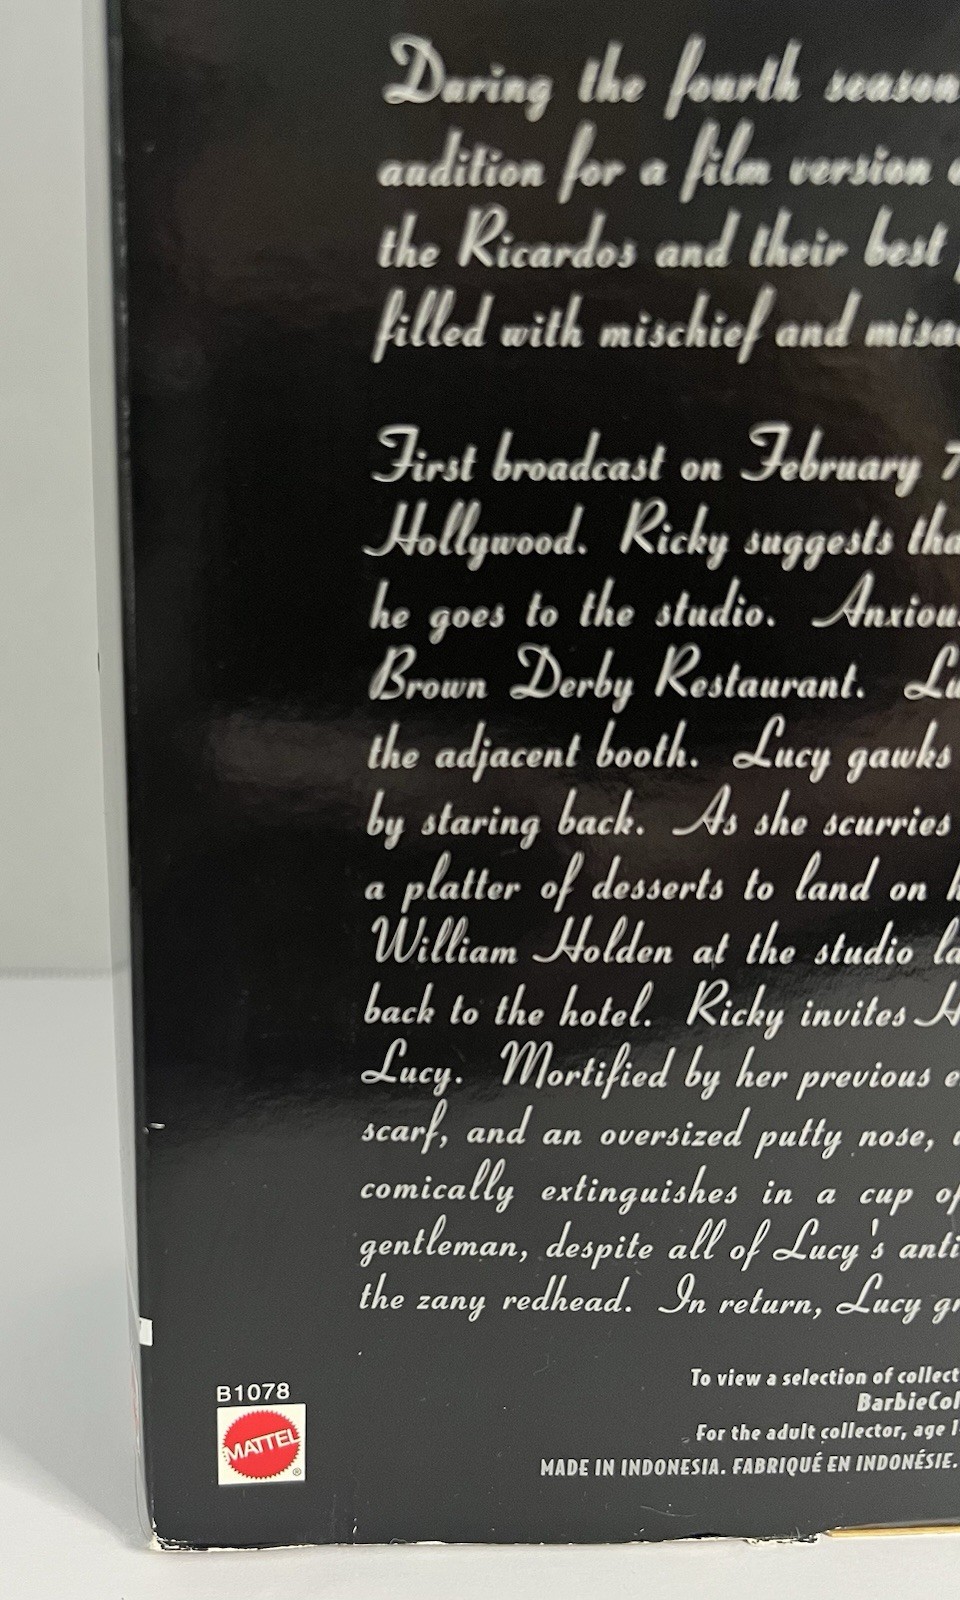 During the fourth season
audition for a film version
the Ricardos and their best
filled with mischief and misa
First broadcast on February 7
Hollywood. Ricky suggests tha
he goes to the studio. Anxiou
Brown Derby Restaurant. Lu
the adjacent booth. Lucy gawks
by staring back. As she scurries
a platter of desserts to land on h
William Holden at the studio la
back to the hotel. Ricky invites H
Lucy. Mortified by her previous e
scarf, and an oversized putty nose,
comically extinguishes in a cup of
gentleman, despite all of Lucy's anti
the zany redhead. In return, Lucy gr
To view a selection of collect
BarbieCol
For the adult collector, age 1
MADE IN INDONESIA. FABRIQUÉ EN INDONÉSIE.
B1078
MATTEL
®